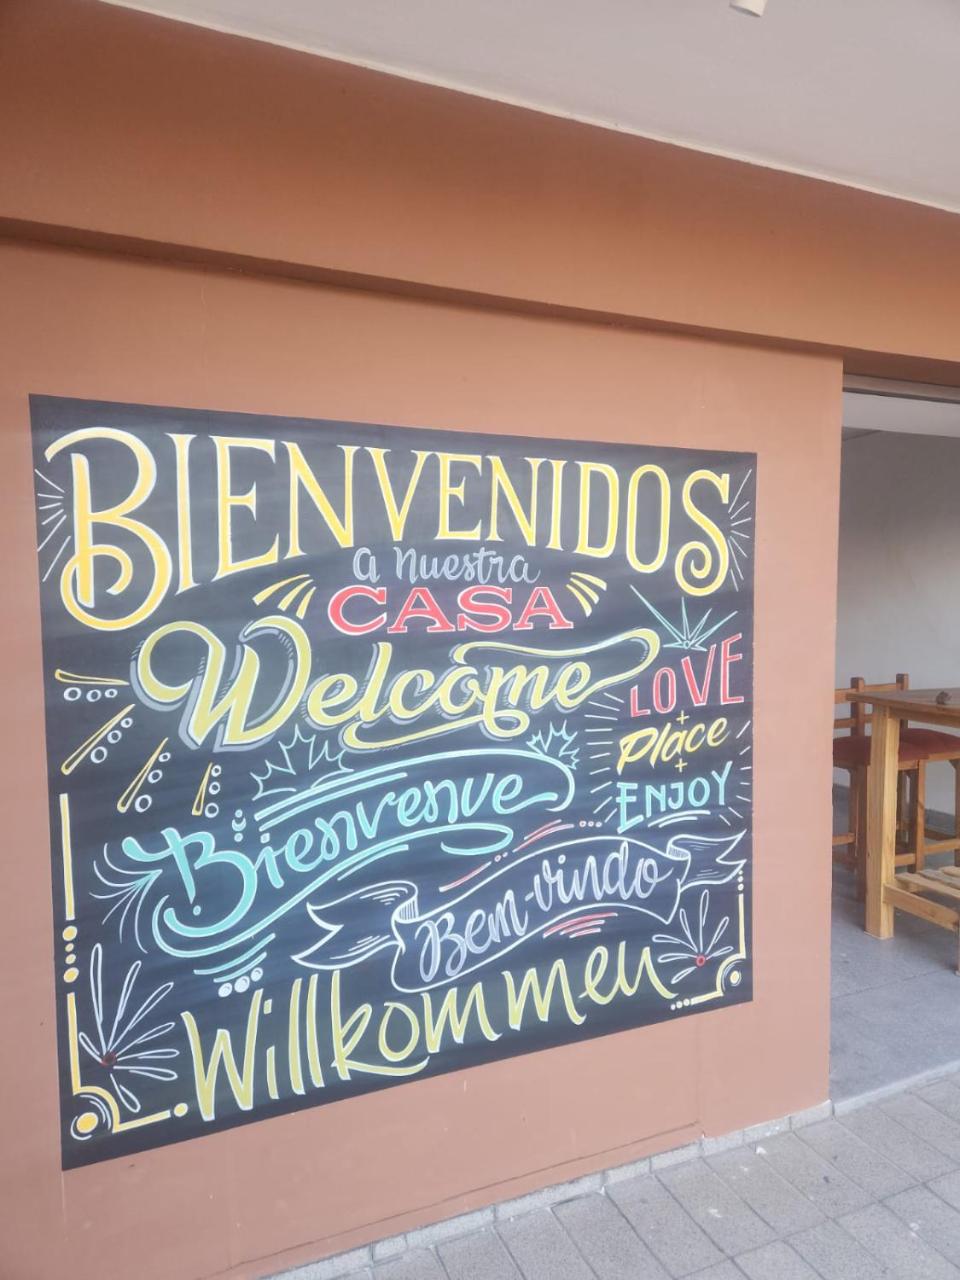 BIENVENIDOS
a nuestra
CASA
Welcome
LOVE
+
Place
+
ENJOY
Bienvenue
Bem-vindo
Willkommen